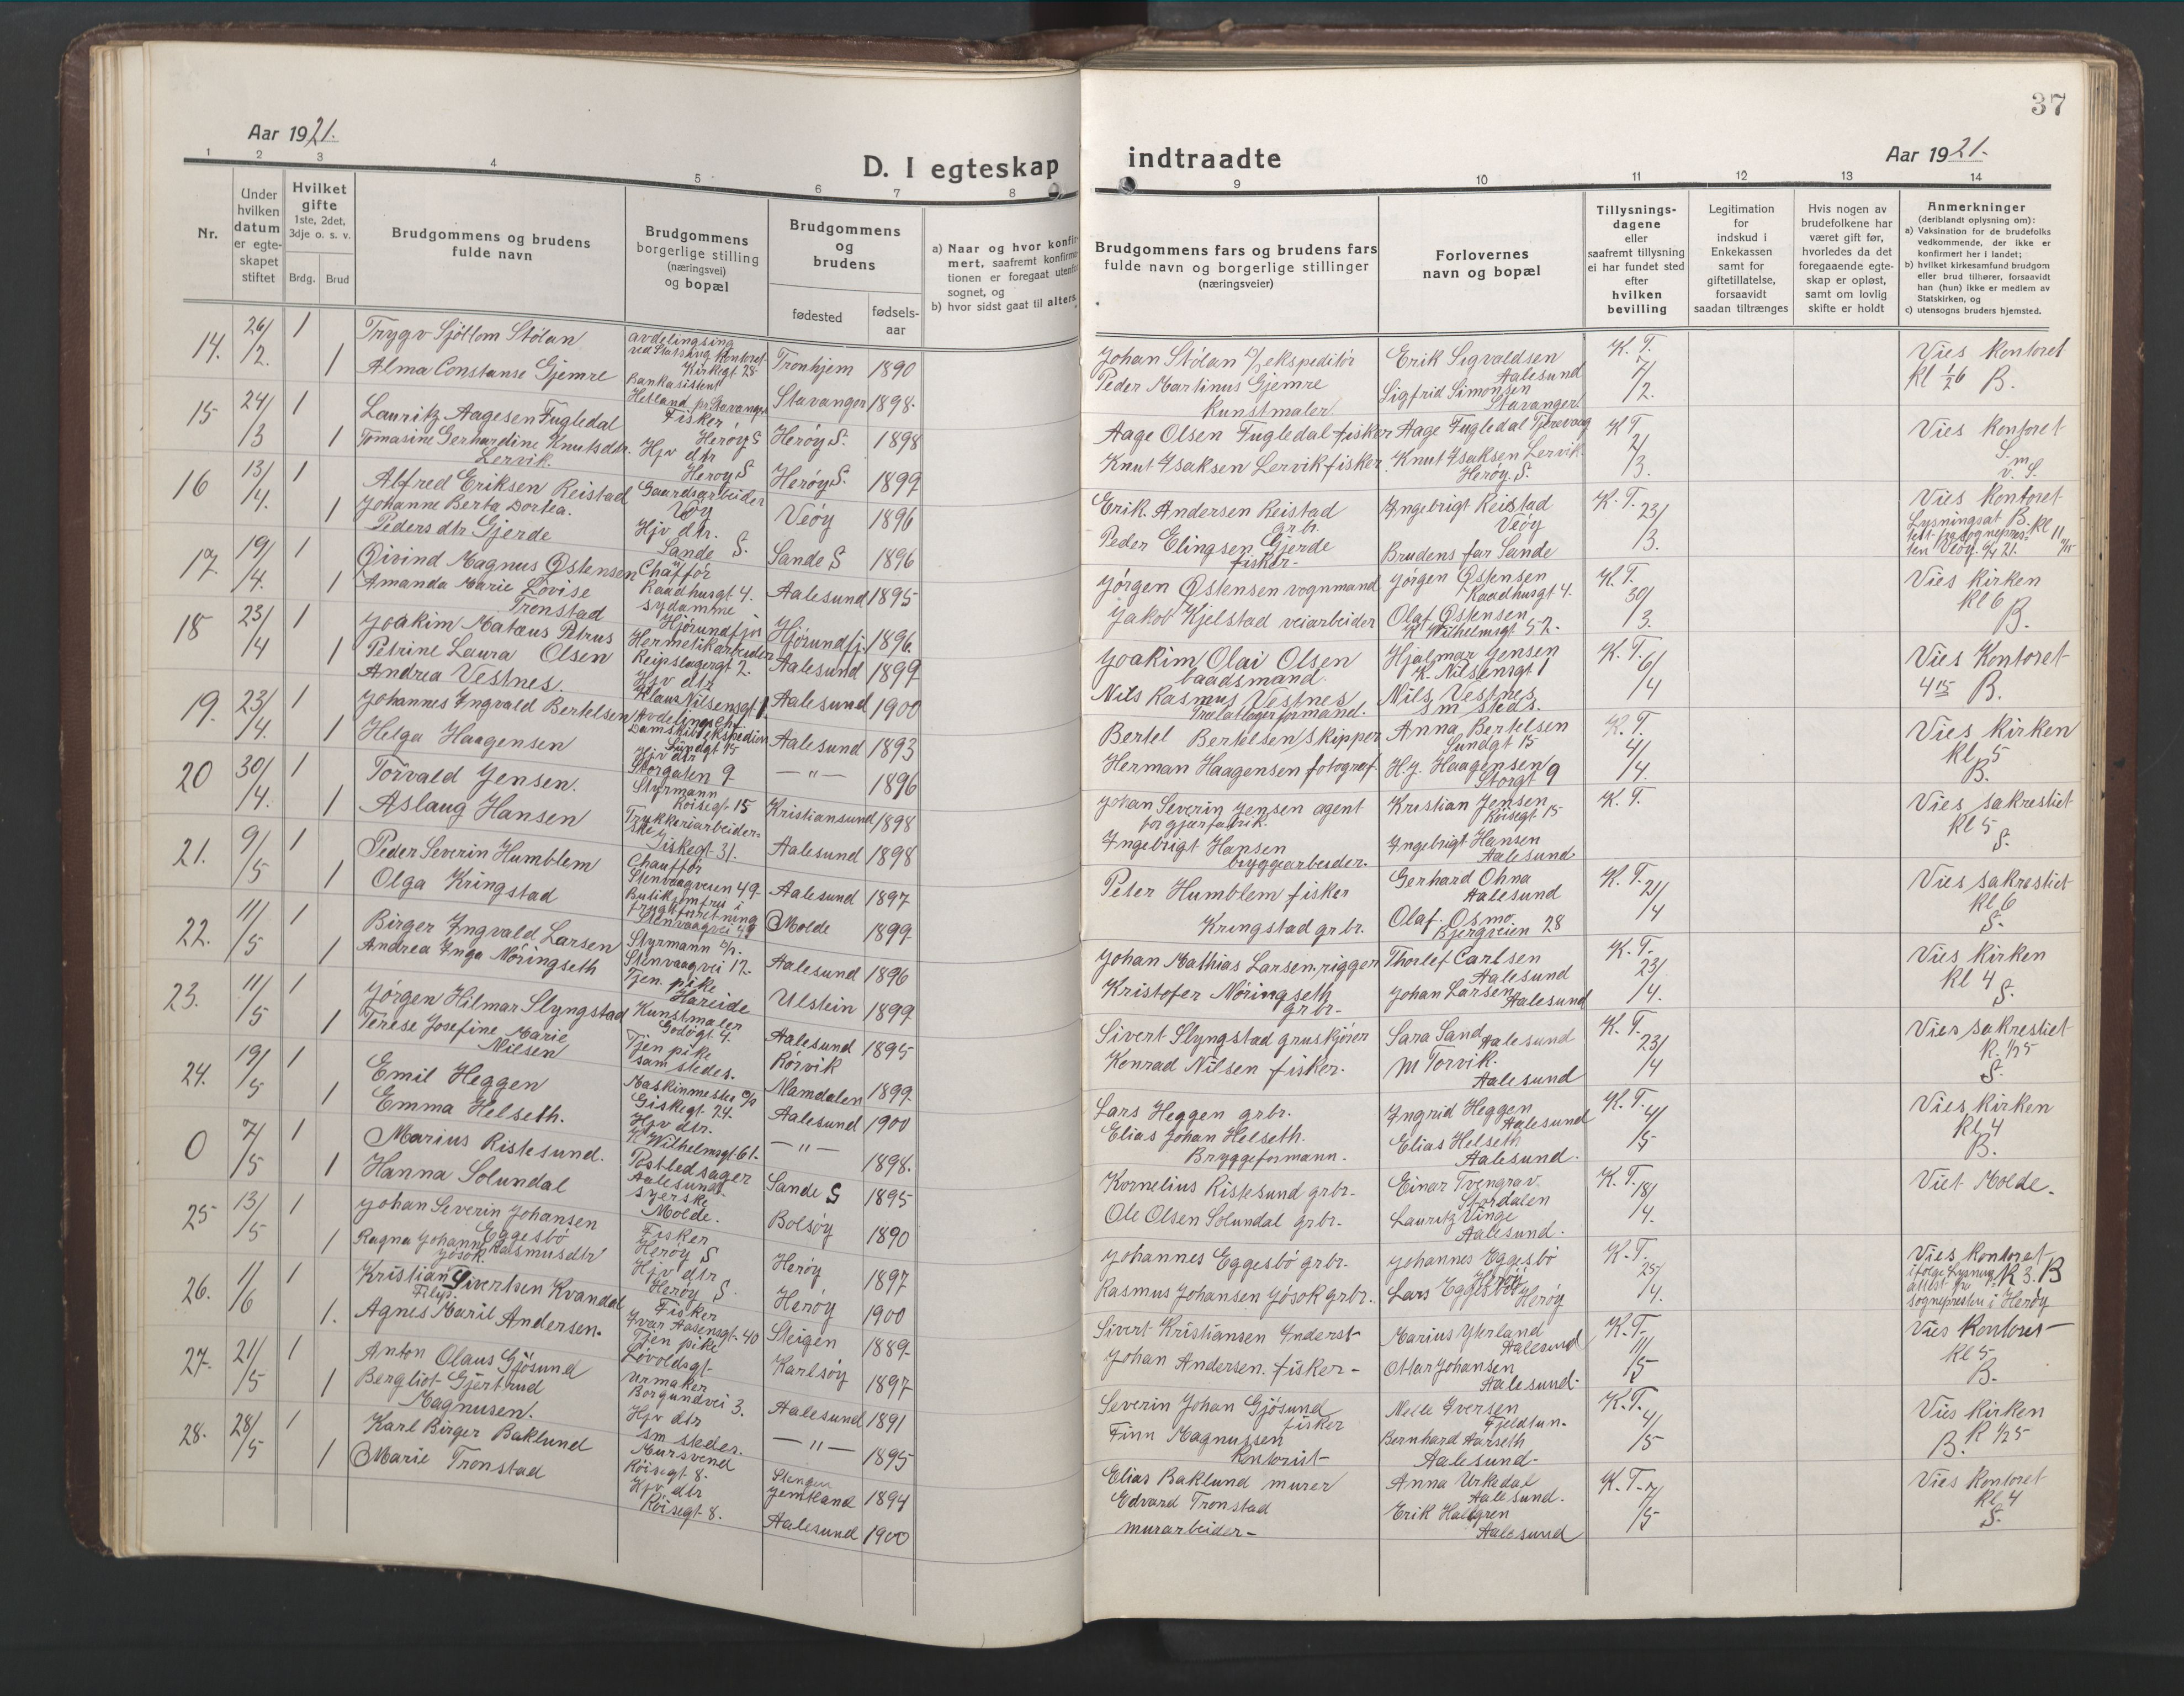 37
Aar 1921.
D. I egteskap
indtraadte
Aar 1921.
1 2 3 4 5 6 7 8 9 10 11 12 13 14
Nr.
Under
hvilken
datum
er egte-
skapet
stiftet
Hvilket
gifte
1ste, 2det,
3dje o. s. v.
Brdg. Brud
Brudgommens og brudens
fulde navn
Brudgommens
borgerlige stilling
(næringsvei)
og bopæl
Brudgommens
og
brudens
fødested
fødsels-
aar
a) Naar og hvor konfir
mert, saafremt konfirma
tionen er foregaat utenfo
sognet, og
b) hvor sidst gaat til alters.
Brudgommens fars og brudens fars
fulde navn og borgerlige stillinger
(næringsveier)
Forlovernes
navn og bopæl
Tillysnings-
dagene
eller
saafremt tillysning
ei har fundet sted
efter
hvilken
bevilling
Legitimation
for
indskud i
Enkekassen
samt for
giftetillatelse,
forsaavidt
saadan tiltrænges
Hvis nogen av
brudefolkene har
været gift før,
hvorledes da det
foregaaende egte-
skap er opløst,
samt om lovlig
skifte er holdt
Anmerkninger
(deriblandt oplysning om):
a) Vaksination for de brudefolks
vedkommende, der ikke er
konfirmert her i landet;
b) hvilket kirkesamfund brudgom
eller brud tilhører, forsaavidt
han (hun) ikke er medlem av
Statskirken, og
c) utensogns bruders hjemsted.
14. 26/2. 1
Trygv Sjöllom Stölan
avdelingsing
Kirkegt. 28
Tronhjem 1890
Johan Stölan ekspeditör
Erik Sigvaldsen
Aalesund
K. T. 7/2.
Vies Kontoret
Kl ½6 B.
1 Alma Constanse Gjemre
Bankasistent
Hetland pr. Stavanger
Stavanger 1898.
Peder Martinus Gjemre
Kunstmaler
Sigfrid Simonsen
Stavanger
15 24/3 1
Lauritz Aagesen Fugledal
Fisker
Heröy S
Heröy S. 1898
Aage Olsen Fugledal fisker
Aage Fugledal Tjörevaag
K T. 2/3.
Vies Kontoret
1 Tomasine Gerhardine Knutsdtr.
Lervik.
Hjv dtr
Heröy S
Heröy S. 1899
Knut Isaksen Lervik fisker.
Knut Isaksen Lervik
Heröy S.
16 13/4. 1
Alfred Eriksen Reistad
Gaardsarbeider
Veöy
Veöy 1896
Erik. Andersen Reistad
grb.
Ingebrigt Reistad
Veöy
K. T. 23/3.
Vies Kontoret
1 Johanne Berta Dortea.
Pedersdtr Gjerde
Hjv dtr.
Sande S.
Sande S 1896
Peder Elingsen Gjerde
fisker-
Brudens far Sande
17. 19/4. 1
Øivind Magnus Østensen
Chafför
Raadhusgt 4.
Aalesund 1895
Jörgen Østensen vognmand
Jörgen Østensen
Raadhusgt 4.
K. T. 30/3.
Vies kirken
Kl 6
B.
1 Amanda Marie Lovise
Tronstad
sydamme
Hjörundfjor
Hjörundfj. 1896.
Jakob Kjelstad veiarbeider
Olaf Østensen
K Wilhelmsgt 52.
18 23/4 1
Joakim Matæus Petrus
Olsen
Hermetikarbeider
Reipslagergt 2.
Aalesund 1899
Joakim Olai Olsen
baadsmand.
Hjalmar Jensen
K. Nilsensgt 1
K. T. 6/4
Vies Kontoret
4 15 B.
1 Petrine Laura
Andrea Vestnes.
Hjv dtr
Klaus Nilsensgt 1.
Aalesund 1900
Nils Rasmus Vestnes
Nils Vestnes
sm steds.
19. 23/4. 1
Johannes Ingvald Bertelsen
Avdelingschf
Damskibsekspedien
Sundgt 15
Aalesund 1893
Bertel Bertelsen Skipper
Anna Bertelsen
Sundgt 15
K. T. 4/4.
Vies kirken
kl 5
B.
1 Helga Haagensen
Hjv dtr
Storgaten 9
— " — 1896
Herman Haagensen fotograf.
H. J. Haagensen
Storgt 9
20 30/4. 1
Torvald Jensen.
Styrmann
Röisegt 15
Kristiansund 1898
Johan Severin Jensen agent
for gjærfabrik.
Kristian Jensen
Röisegt. 15
K. T.
Vies sakrestiet
kl 5
S.
1 Aslaug Hansen
Trykkeriarbeider-
ske
Giskegt 31.
Aalesund 1898
Ingebrigt Hansen
bryggearbeider.
Ingebrigt Hansen
Aalesund
21. 9/5 1
Peder Severin Humblem
Chaufför
Stenvaagveien 49
Aalesund 1897
Peter Humblem fisker
Gerhard Ohna
Aalesund
K. T. 21/4
Vies sakrestiet
kl 6
S.
1 Olga Kringstad
Butikjomfru i
frugtforretning
Stenvaagvei 49
Molde 1899
Kringstad grbr.
Olaf. Osmo.
Bjergveien 28
22. 11/5 1
Birger Ingvald Larsen
Styrmann
Stenvaagvei 17.
Aalesund 1896
Johan Mathias Larsen. rigger
Thorlef Carlsen
Aalesund
K. T. 23/4.
Vies kirken
kl 4
S.
1 Andrea Inga Nöringseth
Tjen. pike
Hareide
Ulstein 1899
Kristofer Nöringseth
grbr-
Johan Larsen
Aalesund
23. 11/5 1
Jörgen Hilmar Slyngstad
Kunstmaler
Godögt 4.
Aalesund 1895
Sivert Slyngstad gruskjörer
Sara Sand
Aalesund
K. T. 23/4
Vies sakrestiet
K. ½5
S.
1 Terese Josefine Marie
Nilsen
Tjen pike
sam stedes.
Rörvik
Namdalen 1899
Konrad Nilsen fisker.
M Torvik.
Aalesund
24. 19/5 1
Emil Heggen
Maskinmester
Giskegt. 24.
Aalesund 1900
Lars Heggen grbr.
Ingrid Heggen
Aalesund
K. T. 4/5
Vies kirken
Kl. 4
B.
1 Emma Helseth.
Hjv dtr.
K Wilhelmsgt 61.
— " — 1898.
Elias Johan Helseth.
Bryggeformann.
Elias Helseth
Aalesund.
0 7/5 1
Marius Ristesund.
Postledsager
Aalesund
Sande S 1895
Kornelius Ristesund grbr-
Einar Tvengrav.
Stordalen
K. T. 18/4.
Viet Molde.
1 Hanna Solundal
syerske
Molde.
Bolsöy 1890
Ole Olsen Solundal grbr-
Lauritz Vinge
Aalesund.
25 13/5 1
Johan Severin Johansen
Eggesbö
Fisker
Heröy S
Heröy 1897
Johannes Eggesbö grbr-
Johannes Eggesbö
Heröy
K. T. 25/4.
Vies Kontoret
ifölge Lysning K 3. B
attest fra
sognepresten i Heröy
1 Ragna Johanne Rasmusdtr
Jösok
Hjv dtr
Heröy S.
Heröy 1900
Rasmus Johansen Jösok grbr.
Lars Eggesbö
Heröy
26. 1/6 1
Kristian Sivertsen Kvandal
Fisker
Ivar Aasensgt- 40
Steigen 1889
Sivert Kristiansen Inderst-
Marius Ytterland
Aalesund
K. T. 11/5
Vies Kontoret
kl 5.
B.
1. Agnes Maril Andersen.
Tjen pike
Lövoldsgt-
Karlsöy 1897
Johan Andersen. fisker-
Ottar Johansen
Aalesund-
27. 21/5 1
Anton Olaus Gjösund
Urmaker
Borgundvei 3.
Aalesund 1891
Severin Johan Gjösund
fisker
Nelle Iversen
Fjeldtun.
K. T. 4/5
Vies kirken
B. K ½5
1 Bergliot Gjertrud
Magnusen.
Hjv dtr
sm steder.
— " — 1895
Finn Magnussen
Kontorist-
Bernhard Aarseth
Aalesund-
28. 28/5 1
Karl Birger Baklund
Mursvend
Röisegt 8.
Jemtland 1894
Elias Baklund murer
Anna Urkedal
Aalesund.
K. T. 7/5
Vies Kontoret
kl 4
S.
1 Marie Tronstad
Hjv dtr
Röisegt 8.
Aalesund 1900
Edvard Tronstad
murarbeider-
Erik Hallgren
Aalesund